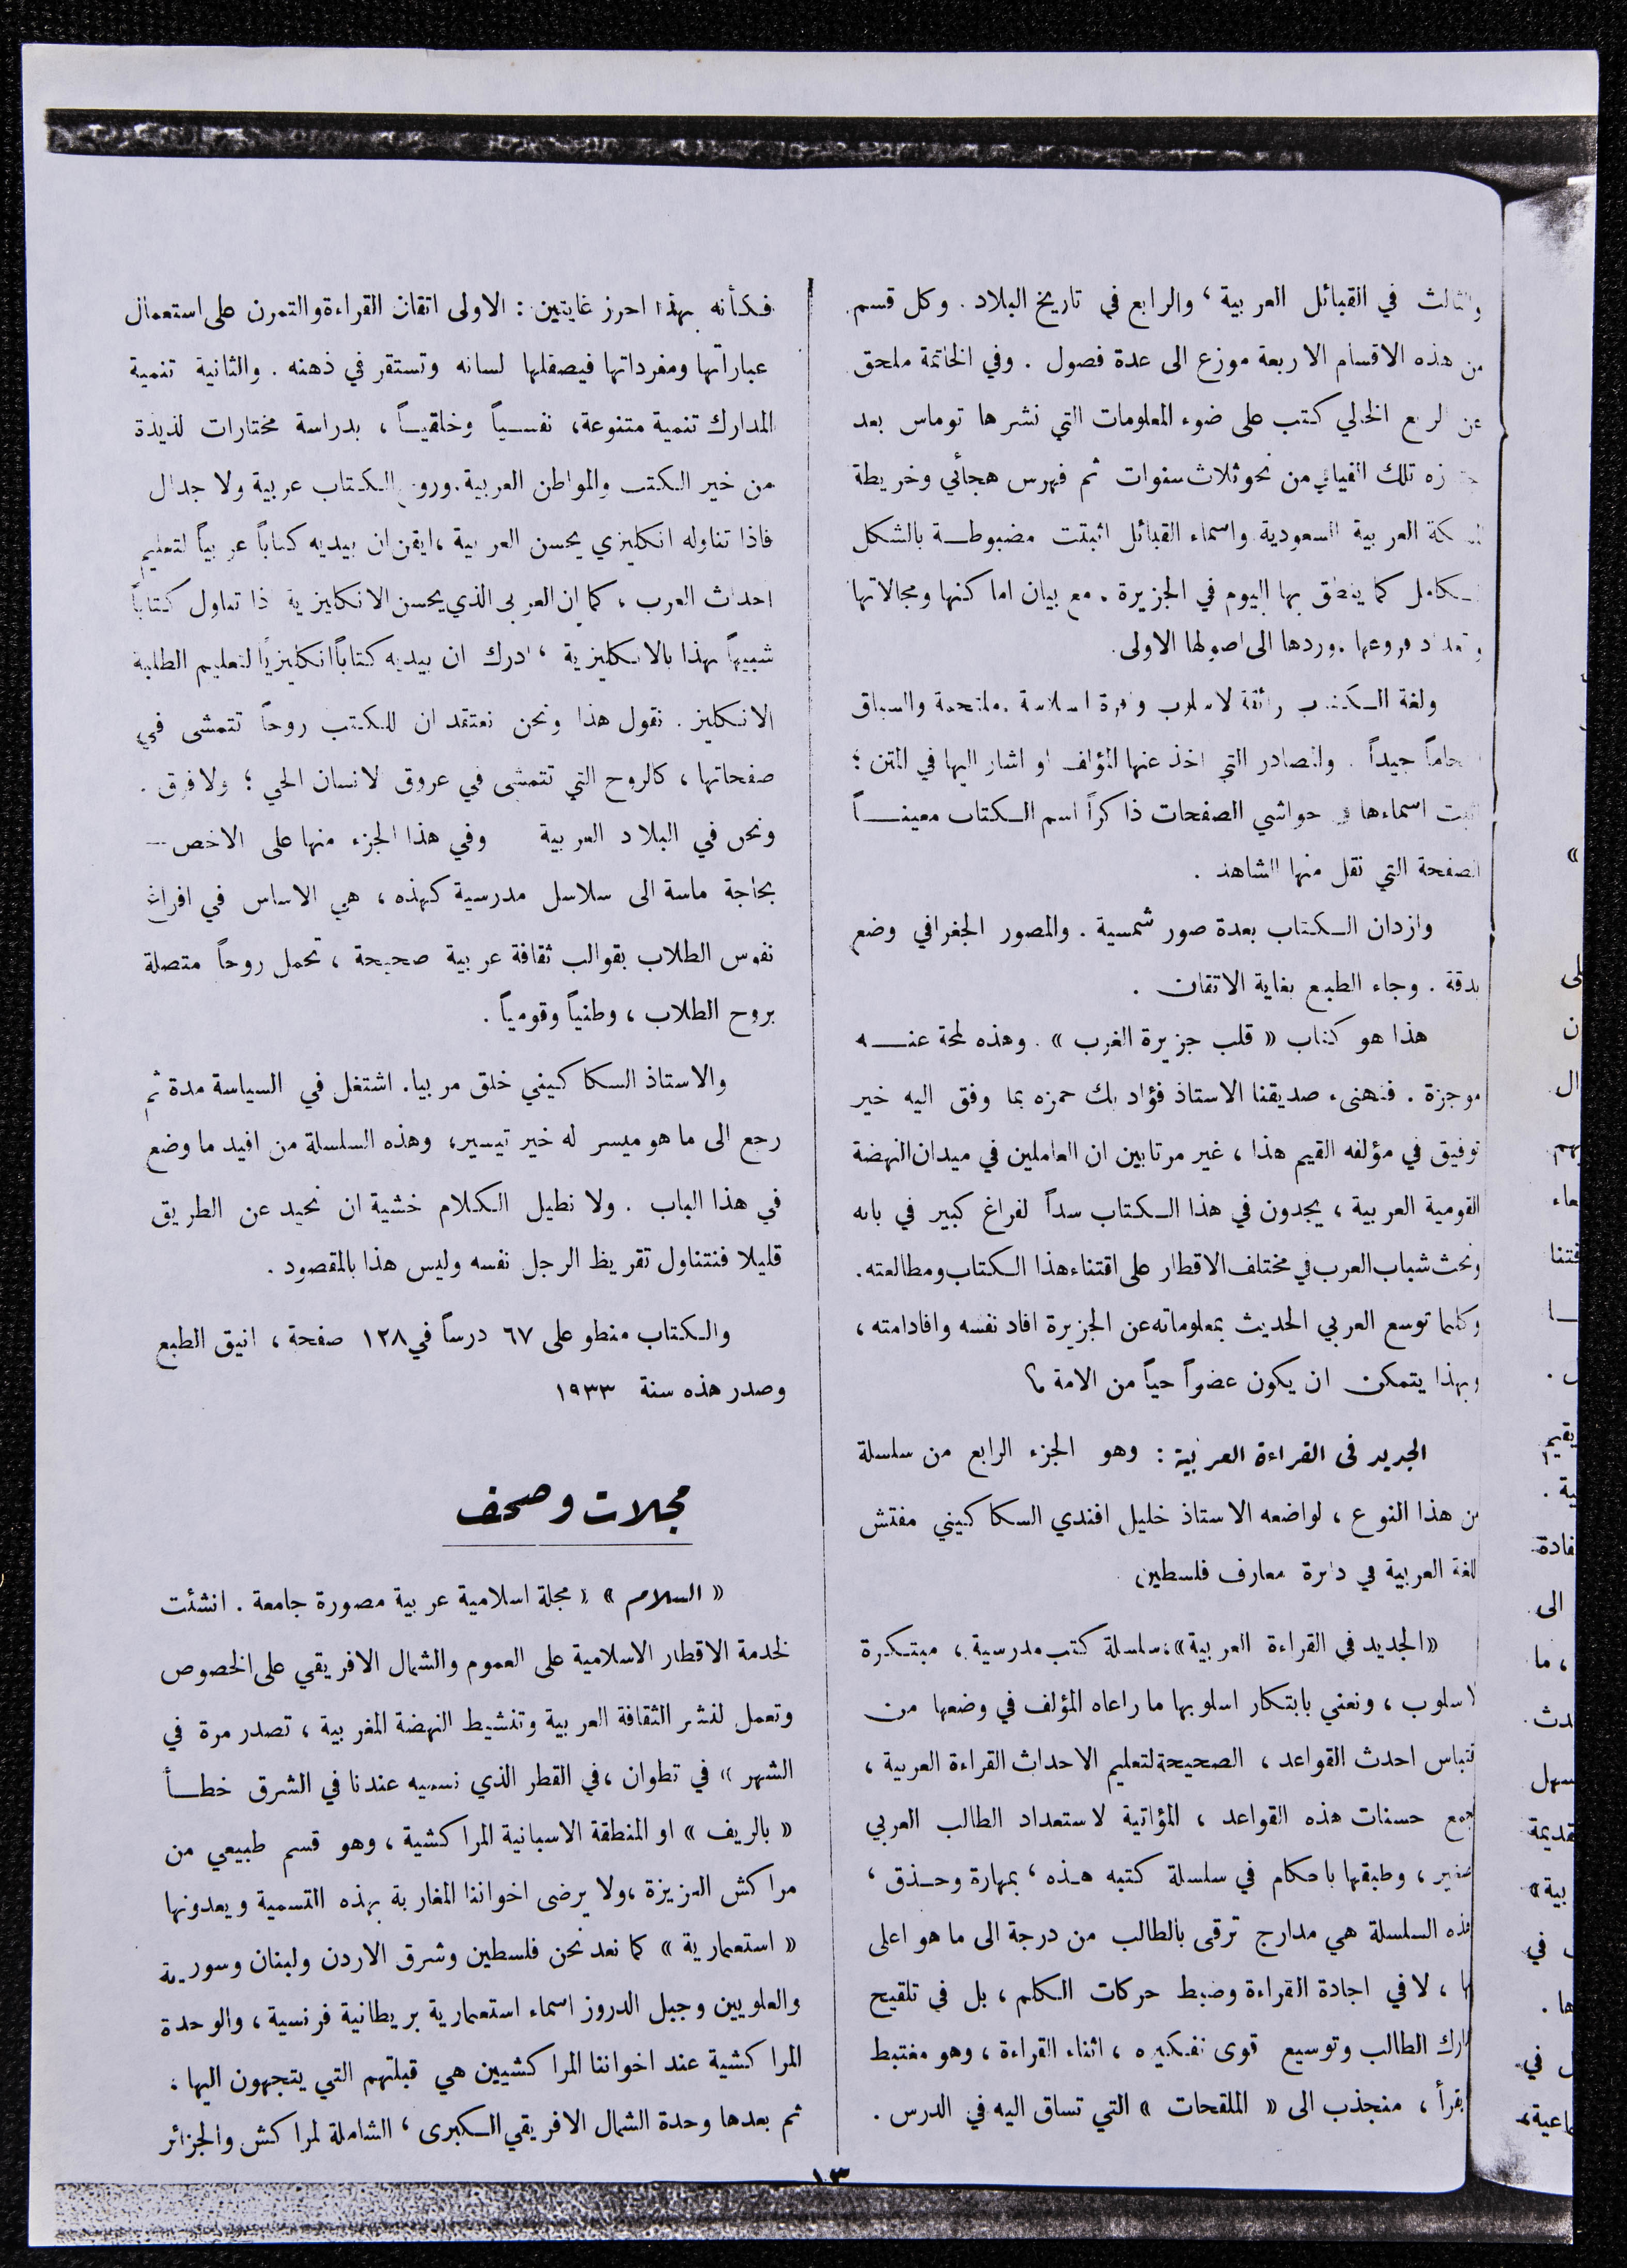 والثالث في القبائل العربية ، والرابع في تاريخ البلاد . وكل قسم
من هذه الاقسام الاربعة موزع الى عدة فصول . وفي الخاتمة ملحق
عن الربع الخالي كتب على ضوء المعلومات التي نشرها توماس بعد
تلك الفيافي من نحو ثلاث سنوات ثم فهرس هجائي وخريطة
العربية السعودية واسماء القبائل اثبتت مضبوطة بالشكل
الكامل كما ينطق بها اليوم في الجزيرة . مع بيان اماكنها ومجالاتها
وتعداد فروعها . وردها الى اصولها الاولى .
ولغة الكتاب السلاسة . ملتحمة والسياق
جيداً . والمصادر التي اخذ عنها المؤلف او اشار اليها في المتن ؛
اسماءها في حواشي الصفحات ذاكراً اسم الكتاب معيناً
الصفحة التي نقل منها الشاهد .
وازدان الكتاب بعدة صور شمسية . والمصور الجغرافي وضع
بدقة . وجاء الطبع بغاية الاتقان .
هذا هو كتاب « قلب جزيرة الغرب » . وهذه لمحة عنه
موجزة . فنهنىء صديقنا الاستاذ فؤاد بك حمزه بما وفق اليه خير
توفيق في مؤلفه القيم هذا ، غير مرتابين ان العاملين في ميدان النهضة
القومية العربية ، يجدون في هذا الكتاب سداً لفراغ كبير في بابه
ونحث شباب العرب في مختلف الاقطار على اقتناء هذا الكتاب ومطالعته .
وكلما توسع العربي الحديث بمعلوماته عن الجزيرة افاد نفسه وافاد امته ،
وبهذا يتمكن ان يكون عضواً حياً من الامة
الجديد في القراءة العربية : وهو الجزء الرابع من سلسلة
من هذا النوع ، لواضعه الاستاذ خليل افندي السكاكيني مفتش
اللغة العربية في دائرة معارف فلسطين
« الجديد في القراءة العربية » ، سلسلة كتب مدرسية ، مبتكرة
الاسلوب ، ونعني بابتكار اسلوبها ما راعاه المؤلف في وضعها من
اقتباس احدث القواعد ، الصحيحة لتعليم الاحداث القراءة العربية ،
حسنات هذه القواعد ، المؤاتية لاستعداد الطالب العربي
الصغير ، وطبقها باحكام في سلسلة كتبه هذه ، بمهارة وحذق ،
هذه السلسلة هي مدارج ترقى بالطالب من درجة الى ما هو اعلى
، لا في اجادة القراءة وضبط حركات الكلم ، بل في تلقيح
مدارك الطالب وتوسيع قوى تفكيره ، اثناء القراءة ، وهو مغتبط
يقرأ ، منجذب الى « الملقحات » التي تساق اليه في الدرس .
فكأنه بهذا احرز غايتين : الاولى اتقان القراءة والتمرن على استعمال
عباراتها ومفرداتها فيصقلها لسانه وتستقر في ذهنه . والثانية تنمية
المدارك تنمية متنوعة ، نفسياً وخلقياً ، بدراسة مختارات لذيذة
من خير الكتب والمواطن العربية . وروح الكتاب عربية ولا جدال
فاذا تناوله انكليزي يحسن العربية ، ايقن ان بيديه كتاباً عربياً لتعليم
احداث العرب ، كما ان العربي الذي يحسن الانكليزية اذا تناول كتاباً
شبيهاً بهذا بالانكليزية ، ادرك ان بيديه كتاباً انكليزياً لتعليم الطلبة
الانكليز . نقول هذا ونحن نعتقد ان للكتب روحاً تتمشى في
صفحاتها ، كالروح التي تتمشى في عروق الانسان الحي ؛ ولا فرق .
ونحن في البلاد العربية وفي هذا الجزء منها على الاخص —
بحاجة ماسة الى سلاسل مدرسية كهذه ، هي الاساس في افراغ
نفوس الطلاب بقوالب ثقافة عربية صحيحة ، تحمل روحاً متصلة
بروح الطلاب ، وطنياً وقومياً .
والاستاذ السكاكيني خلق مربيا . اشتغل في السياسة مدة ثم
رجع الى ما هو ميسر له خير تيسير ، وهذه السلسلة من افيد ما وضع
في هذا الباب . ولا نطيل الكلام خشية ان نحيد عن الطريق
قليلا فنتناول تقريظ الرجل نفسه وليس هذا بالمقصود .
والكتاب منطو على ٦٧ درساً في ١٢٨ صفحة ، انيق الطبع
وصدر هذه سنة ١٩٣٣
مجلات وصحف
« السلام » « مجلة اسلامية عربية مصورة جامعة . انشئت
لخدمة الاقطار الاسلامية على العموم والشمال الافريقي على الخصوص
وتعمل لنشر الثقافة العربية وتنشيط النهضة المغربية ، تصدر مرة في
الشهر » في تطوان ، في القطر الذي نسميه عندنا في الشرق خطأ
« بالريف » او المنطقة الاسبانية المراكشية ، وهو قسم طبيعي من
مراكش العزيزة ، ولا يرضى اخواننا المغاربة بهذه التسمية ويعدونها
« استعمارية » كما نعد نحن فلسطين وشرق الاردن ولبنان وسورية
والعلويين وجبل الدروز اسماء استعمارية بريطانية فرنسية ، والوحدة
المراكشية عند اخواننا المراكشيين هي قبلتهم التي يتجهون اليها .
ثم بعدها وحدة الشمال الافريقي الكبرى ، الشاملة لمراكش والجزائر
١٣